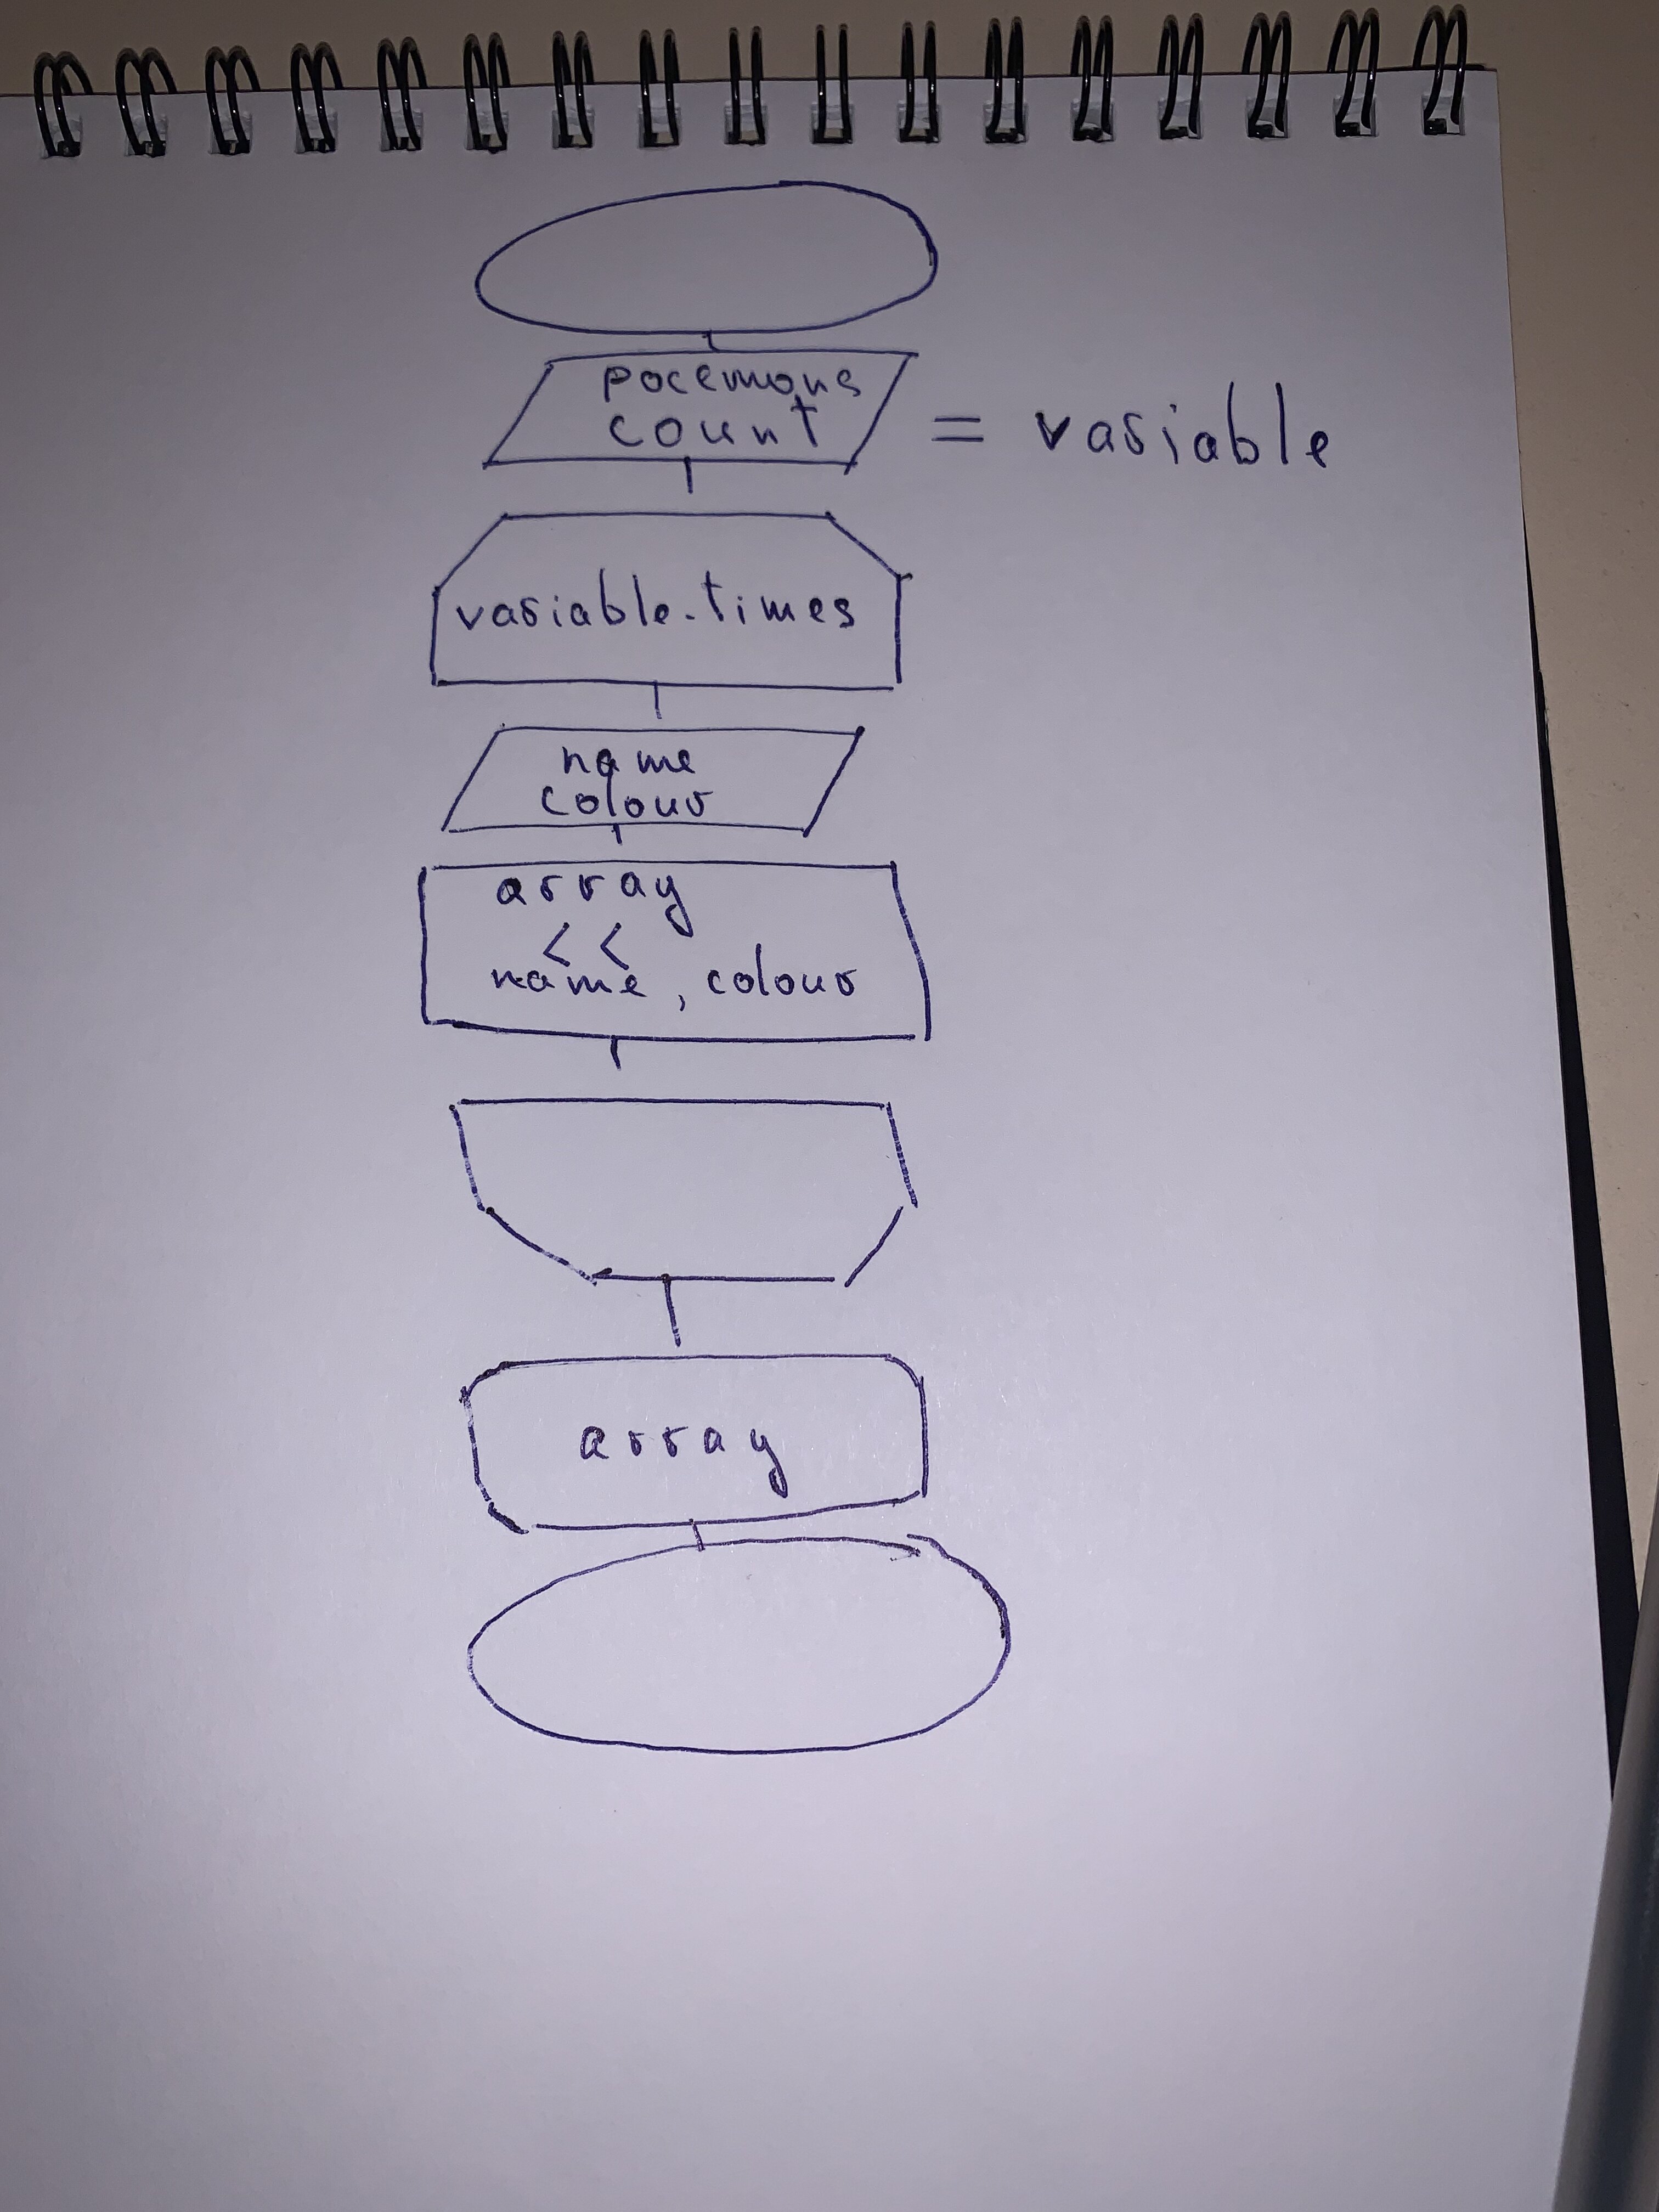 pocemons
count = variable
variable.times
name
colour
array
<<
name, colour
array